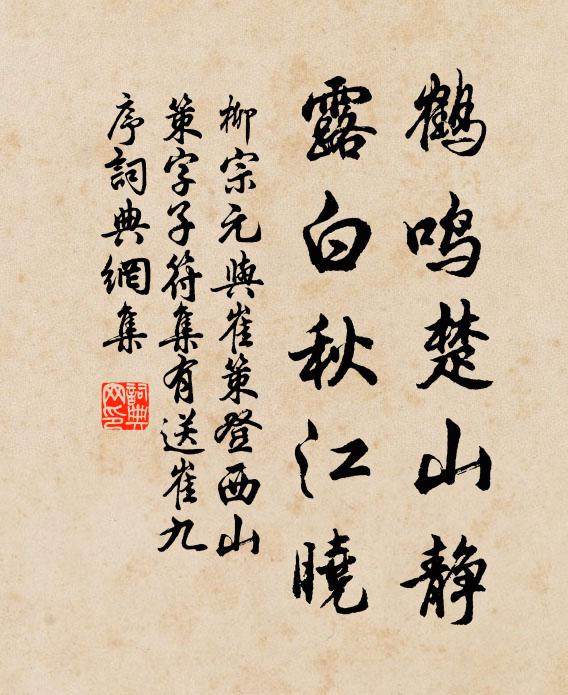 鹤鸣楚山静
露白秋江曉
柳宗元與崔策登西山
策字子符集有送崔九
序詞典網集
詞典
网印